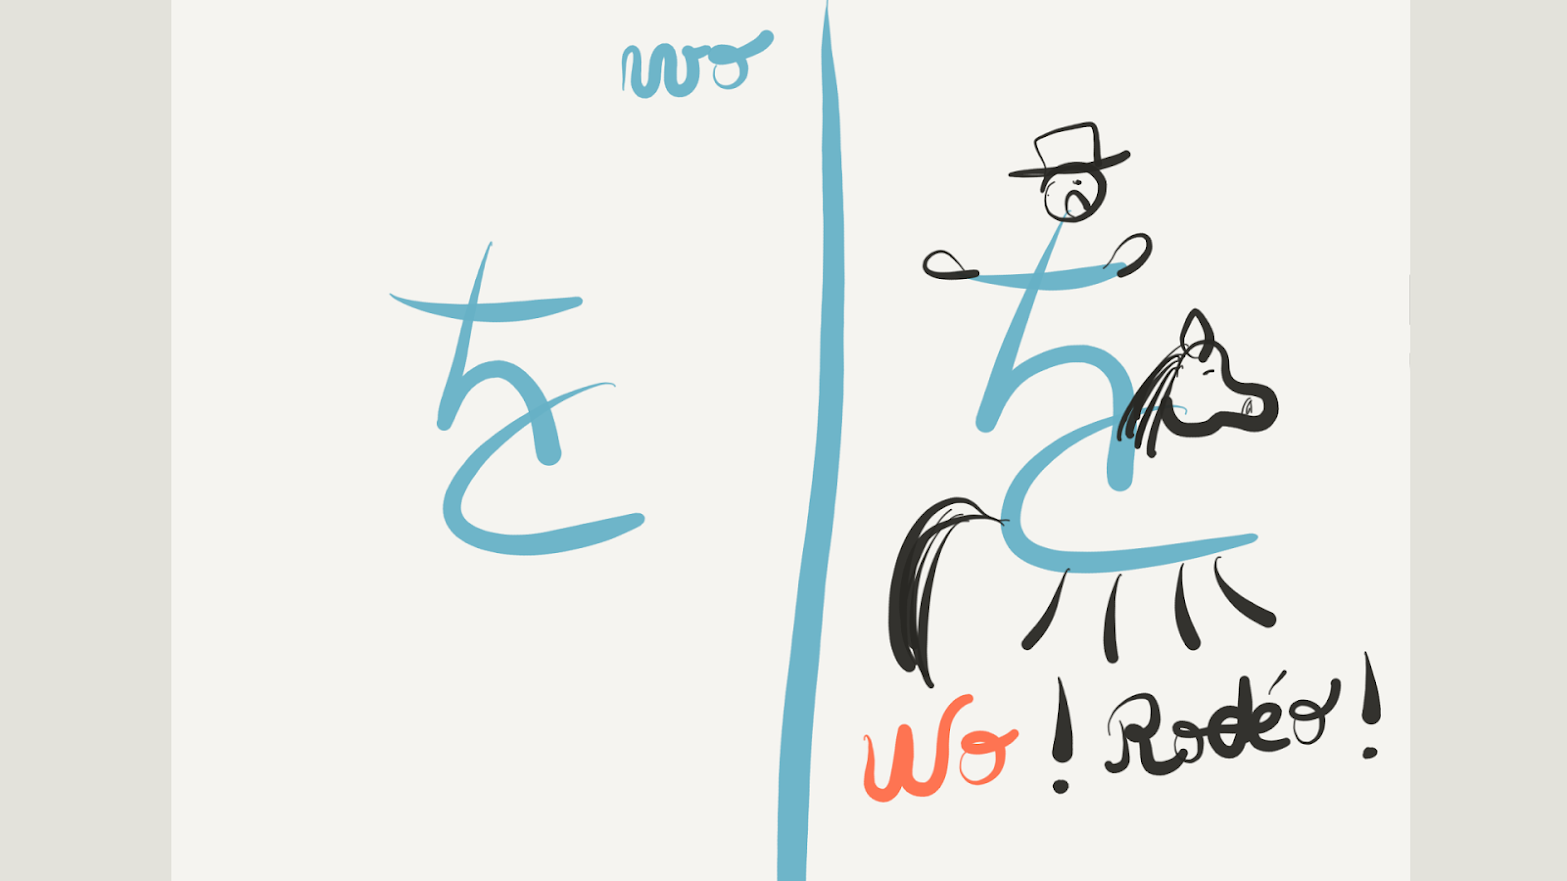 wo
を
Wo ! Rodéo !